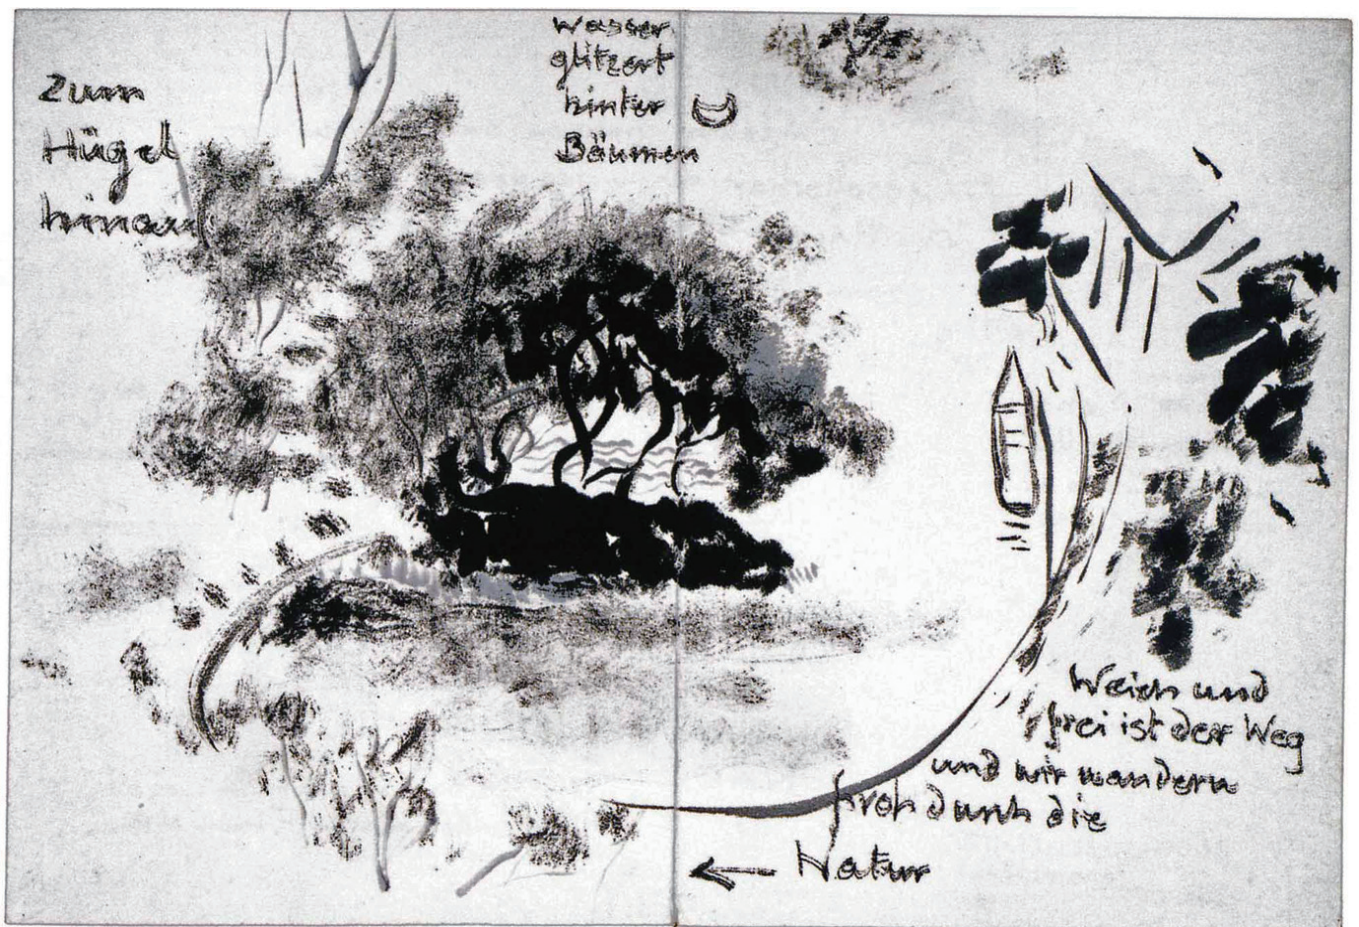 Zum
Hügel
hinauf
Wasser
glitzert
hinter
Bäumen
Weich und
frei ist der Weg
und wir wandern
froh durch die
Natur